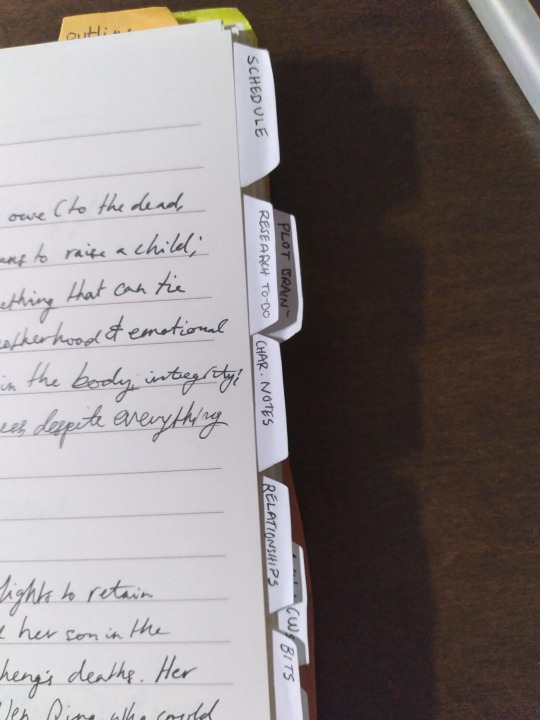 outline
SCHEDULE
PLOT BRAIN-
RESEARCH TO-DO
CHAR. NOTES
RELATIONSHIPS
CWS
BITS
owe (to the dead,
to raise a child;
that can tie
& emotional
in the body, integrity;
despite everything
to retain
her son in the
deaths. Her
Qing who could